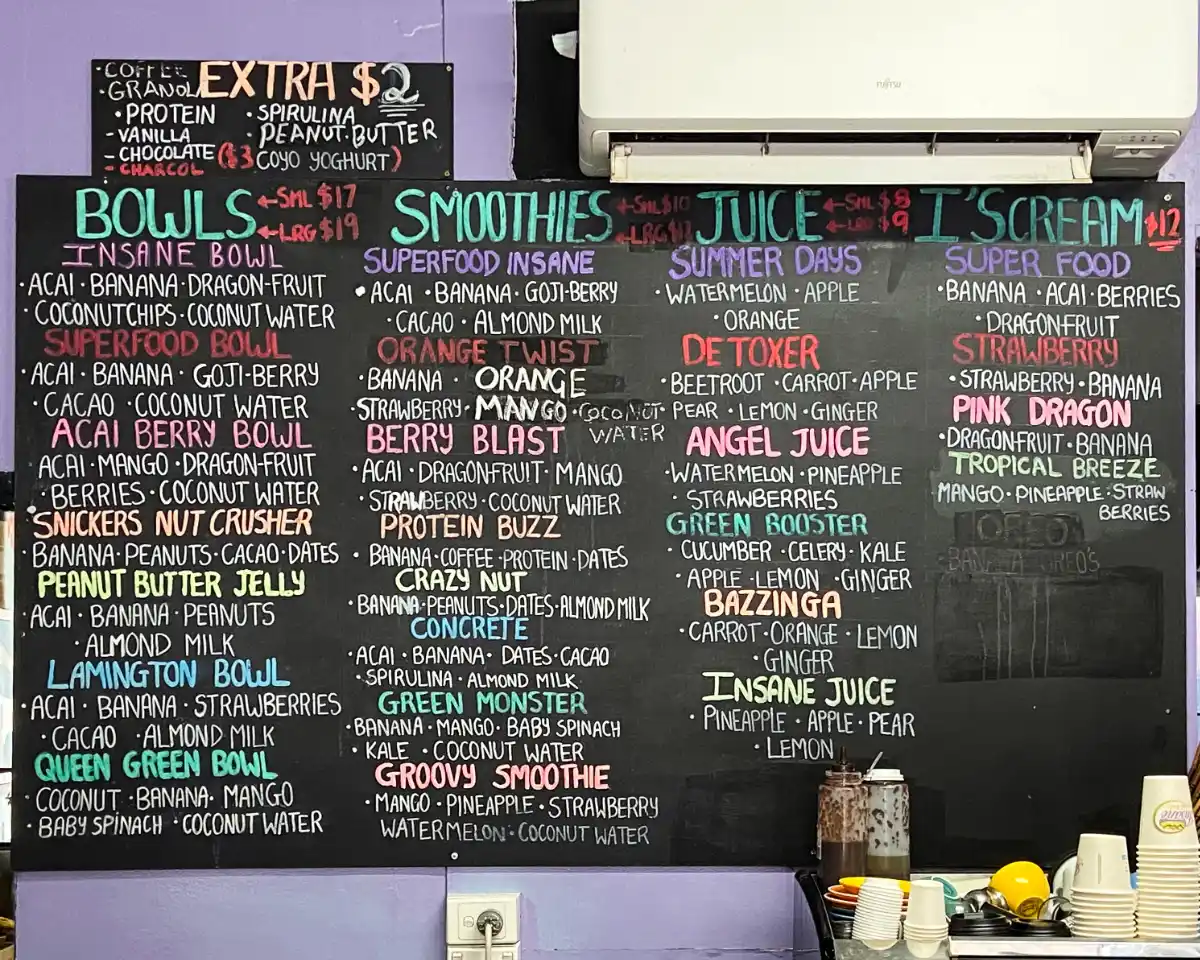 FUJITSU
·COFFEE
·GRANOLA
EXTRA $2
·PROTEIN
-VANILLA
-CHOCOLATE
-CHARCOL
·SPIRULINA
·PEANUT·BUTTER
($3 COYO YOGHURT)
BOWLS ←SML $17
←LRG $19
INSANE BOWL
·ACAI·BANANA·DRAGON-FRUIT
·COCONUTCHIPS·COCONUT WATER
SUPERFOOD BOWL
·ACAI·BANANA·GOJI-BERRY
·CACAO·COCONUT WATER
ACAI BERRY BOWL
ACAI·MANGO·DRAGON-FRUIT
·BERRIES·COCONUT WATER
SNICKERS NUT CRUSHER
·BANANA·PEANUTS·CACAO·DATES
PEANUT BUTTER JELLY
·ACAI·BANANA·PEANUTS
·ALMOND MILK
LAMINGTON BOWL
·ACAI·BANANA·STRAWBERRIES
·CACAO·ALMOND MILK
QUEEN GREEN BOWL
·COCONUT·BANANA·MANGO
·BABY SPINACH·COCONUT WATER
SMOOTHIES ←SML $10
←LRG
SUPERFOOD INSANE
·ACAI·BANANA·GOJI-BERRY
·CACAO·ALMOND MILK
ORANGE TWIST
·BANANA·ORANGE
·STRAWBERRY·MANGO·COCONUT
WATER
BERRY BLAST
·ACAI·DRAGONFRUIT·MANGO
·STRAWBERRY·COCONUT WATER
PROTEIN BUZZ
·BANANA·COFFEE·PROTEIN·DATES
CRAZY NUT
·BANANA·PEANUTS·DATES·ALMOND MILK
CONCRETE
·ACAI·BANANA·DATES·CACAO
·SPIRULINA·ALMOND MILK
GREEN MONSTER
·BANANA·MANGO·BABY SPINACH
·KALE·COCONUT WATER
GROOVY SMOOTHIE
·MANGO·PINEAPPLE·STRAWBERRY
WATERMELON·COCONUT WATER
JUICE ←SML $8
←LRG $9
SUMMER DAYS
·WATERMELON·APPLE
·ORANGE
DETOXER
·BEETROOT·CARROT·APPLE
PEAR·LEMON·GINGER
ANGEL JUICE
·WATERMELON·PINEAPPLE
·STRAWBERRIES
GREEN BOOSTER
·CUCUMBER·CELERY·KALE
·APPLE·LEMON·GINGER
BAZZINGA
·CARROT·ORANGE·LEMON
·GINGER
INSANE JUICE
·PINEAPPLE·APPLE·PEAR
·LEMON
I'SCREAM $12
SUPER FOOD
·BANANA·ACAI·BERRIES
·DRAGONFRUIT
STRAWBERRY
·STRAWBERRY·BANANA
PINK DRAGON
·DRAGONFRUIT·BANANA
TROPICAL BREEZE
MANGO·PINEAPPLE·STRAW
BERRIES
OREO
BANANA OREO'S